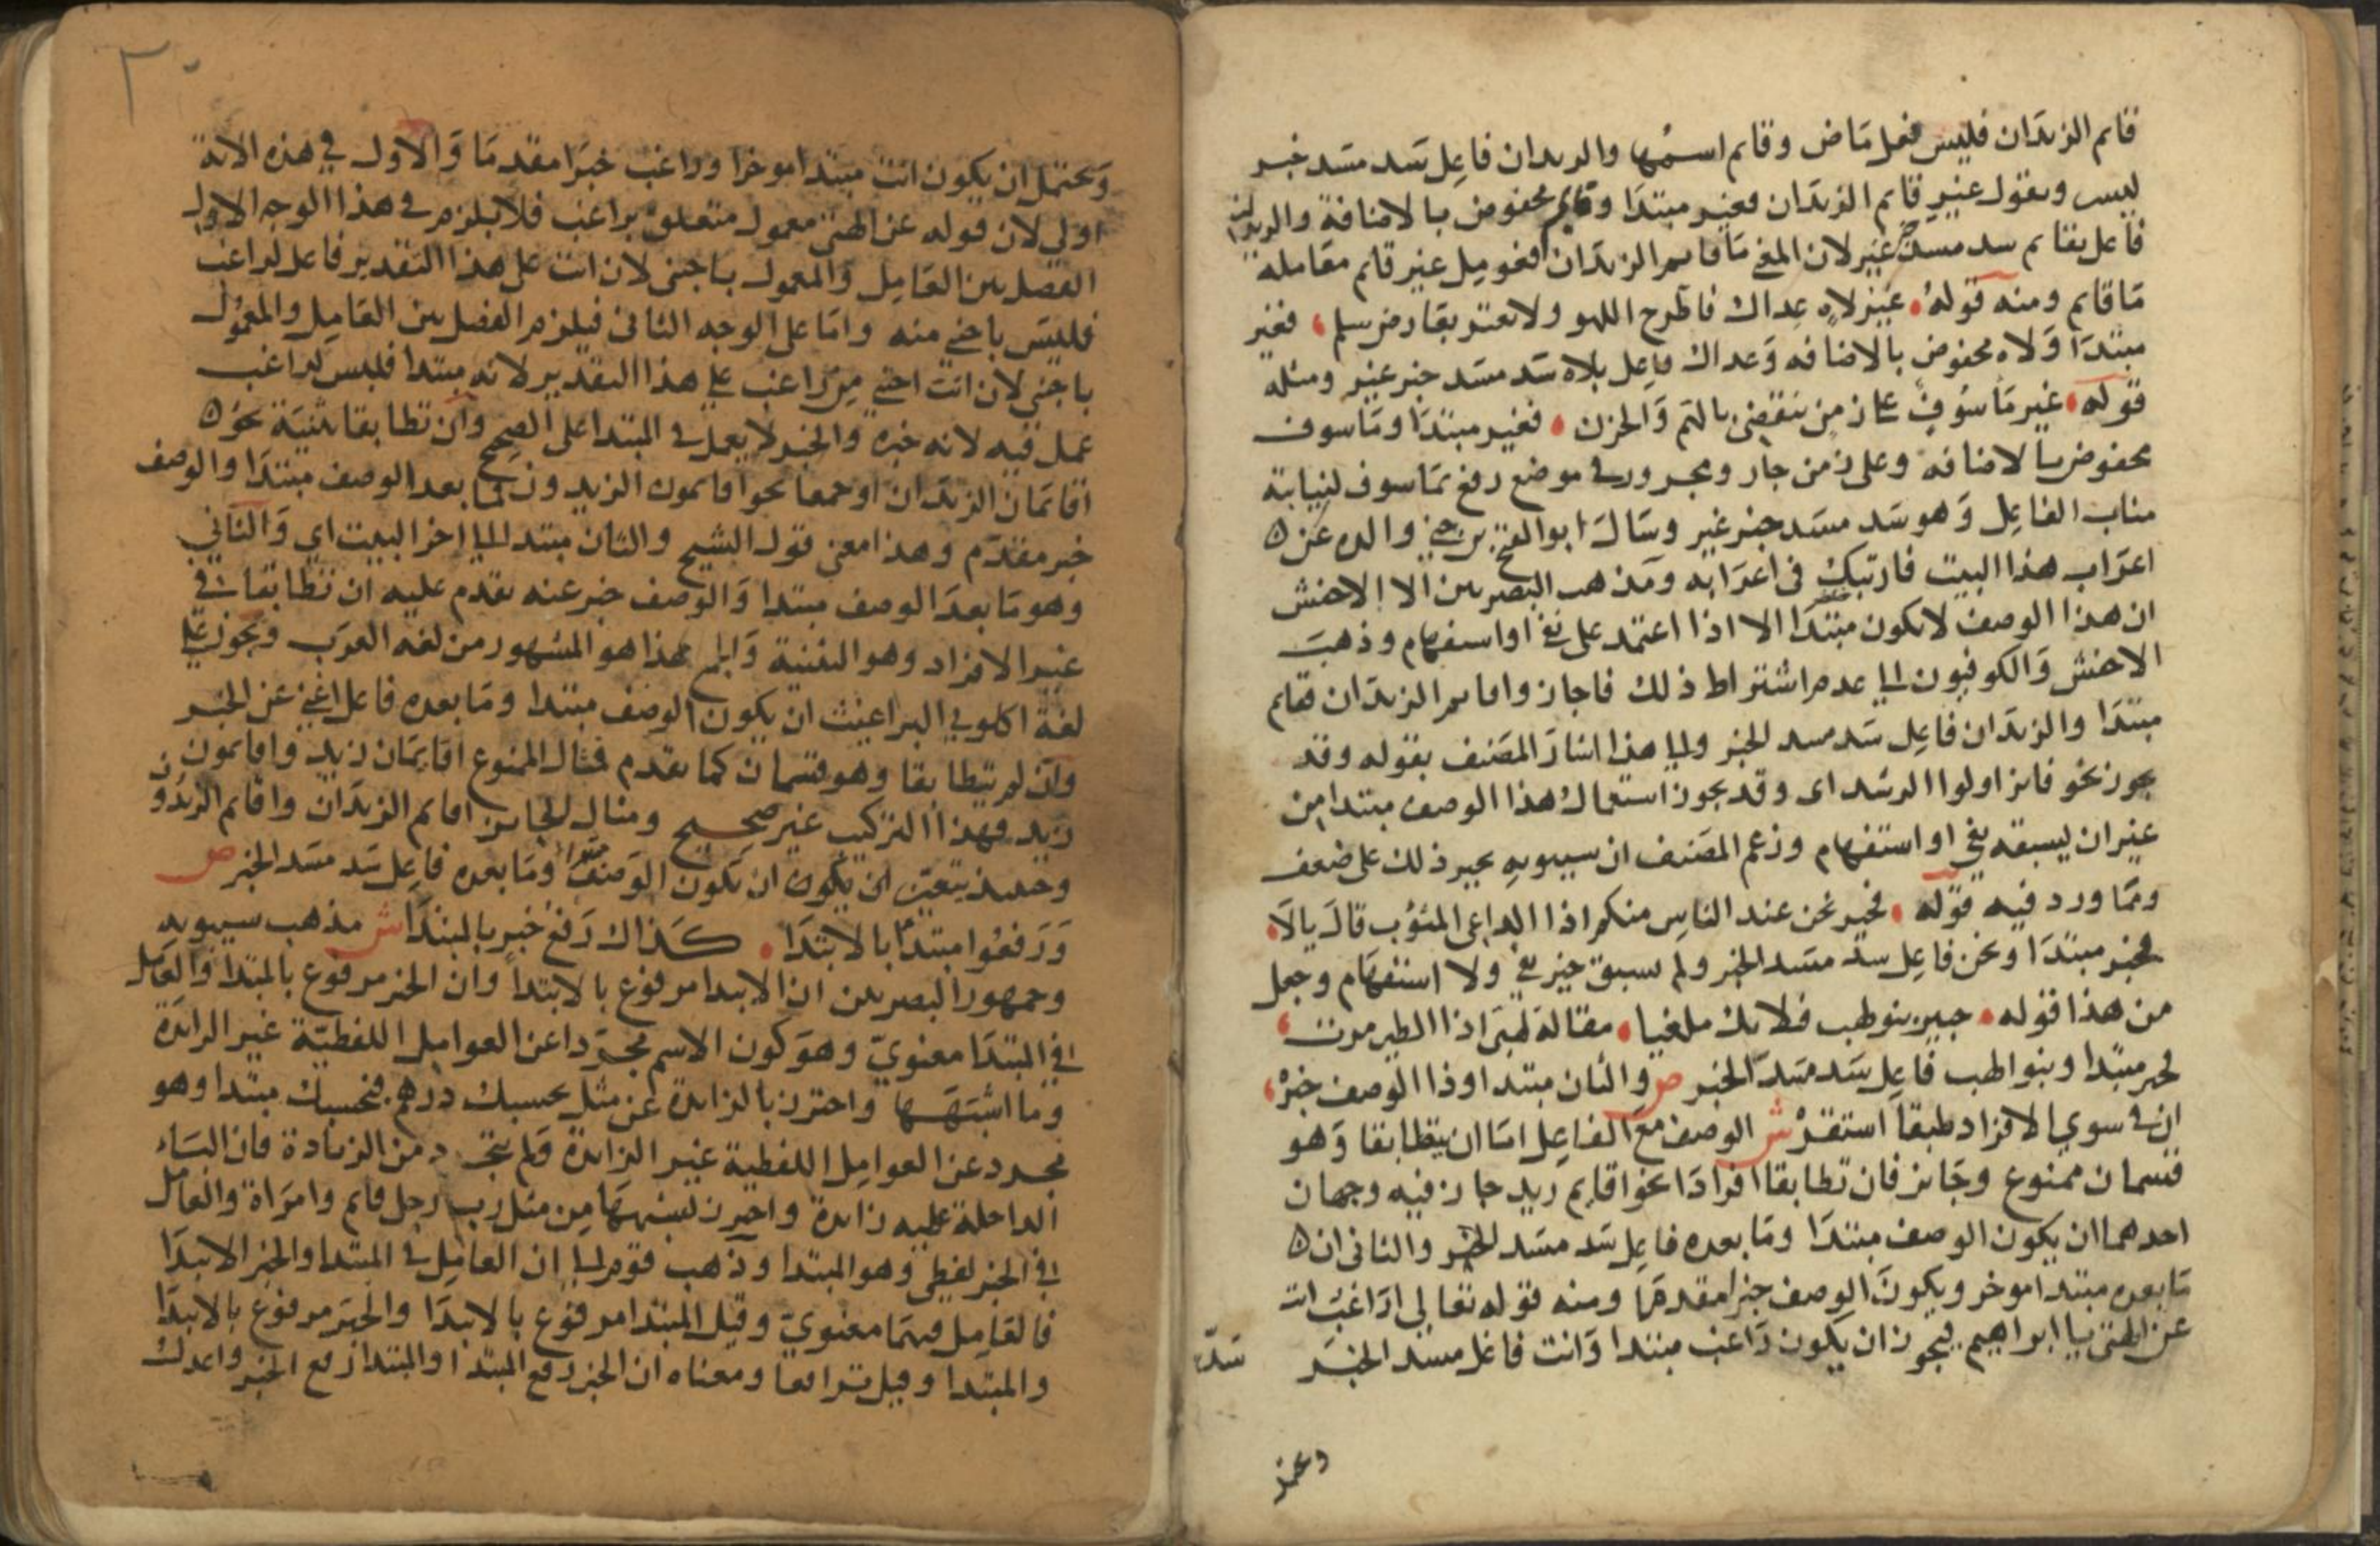 قايم الزيدان فليس فعل ماض وقايم اسمها والزيدان فاعل سد مسد خبر
ليس وتقول غير قايم الزيدان فغير مبتدا وقايم مخفوض بالاضافة والزيدان
فاعل بقايم سد مسد خبر غير لان المعني ما قايم الزيدان فعومل غير قايم معاملة
ما قايم ومنه قوله غير لاه عداك فاطرح اللهو ولا تغتر بعارض سلم فغير
مبتدا ولاه مخفوض بالاضافه وعداك فاعل بلاه سد مسد خبر غير ومثله
قوله غير ماسوف على زمن ينقضي بالهم والحزن فغير مبتدا وماسوف
مخفوض بالاضافه وعلى زمن جار ومجرور في موضع رفع بماسوف لنيابته
مناب الفاعل وهو سد مسد خبر غير وسال ابو الفتح بن جني والده عن
اعراب هذا البيت فارتبك في اعرابه ومذهب البصريين الا الاخفش
ان هذا الوصف لا يكون مبتدا الا اذا اعتمد على نفي او استفهام وذهب
الاخفش والكوفيون الي عدم اشتراط ذلك فاجازوا قايم الزيدان فقايم
مبتدا والزيدان فاعل سد مسد الخبر والي هذا اشار المصنف بقوله وقد
يجوز نحو فايز اولوا الرشد اي وقد يجوز استعمال هذا الوصف مبتدا من
غير ان يسبقه نفي او استفهام وزعم المصنف ان سيبويه يجيز ذلك على ضعف
ومما ورد فيه قوله فخير نحن عند الناس منكم اذا الداعي المثوب قال يالا
فخير مبتدا ونحن فاعل سد مسد الخبر ولم يسبق خير نفي ولا استفهام وجعل
من هذا قوله خبير بنو لهب فلا تك ملغيا مقالة لهبي اذا الطير مرت
فخبير مبتدا وبنو لهب فاعل سد مسد الخبر ص والثان مبتدا وذا الوصف خبر
ان في سوي الافراد طبقا استقر ش الوصف مع الفاعل اما ان يتطابقا وهو
قسمان ممنوع وجايز فان تطابقا افرادا نحو اقايم زيد جاز فيه وجهان
احدهما ان يكون الوصف مبتدا وما بعده فاعل سد مسد الخبر والثاني ان
ما بعده مبتدا موخر ويكون الوصف خبرا مقدما ومنه قوله تعالي اراغب انت
عن الهتي يا ابراهيم فيجوز ان يكون راغب مبتدا وانت فاعل مسد الخبر
سد
٣٠
ويحتمل ان يكون انت مبتدا موخرا وراغب خبرا مقدما والاول في هذه الاية
اولي لان قوله عن الهتي معمول متعلق براغب فلا يلزم في هذا الوجه الاول
الفصل بين العامل والمعمول باجنبي لان انت على هذا التقدير فاعل لراغب
فليس باجنبي منه واما على الوجه الثاني فيلزم الفصل بين العامل والمعمول
باجنبي لان انت اجنبي من راغب علي هذا التقدير لانه مبتدا فليس لراغب
عمل فيه لانه خبره والخبر لا يعمل في المبتدا على الصحيح وان تطابقا تثنية نحو
اقايمان الزيدان او جمعا نحو اقايمون الزيدون فما بعد الوصف مبتدا والوصف
خبر مقدم وهذا معني قول الشيخ والثان مبتدا الي اخر البيت اي والثاني
وهو ما بعد الوصف مبتدا والوصف خبر عنه تقدم عليه ان تطابقا في
غير الافراد وهو التثنية والجمع هذا هو المشهور من لغه العرب ويجوز علي
لغة اكلوني البراغيث ان يكون الوصف مبتدا وما بعده فاعل اغني عن الخبر
وان لم يتطابقا وهو قسمان كما تقدم فمثال الممنوع اقايمان زيد واقايمون
زيد فهذا التركيب غير صحيح ومثال الجايز اقايم الزيدان واقايم الزيدون
وحينيذ يتعين ان يكون ان يكون الوصف مبتدا وما بعده فاعل سد مسد الخبر ص
ورفعوا مبتدا بالابتدا كذاك رفع خبر بالمبتدا ش مذهب سيبويه
وجمهور البصريين ان الابتدا مرفوع بالابتدا وان الخبر مرفوع بالمبتدا والعامل
في المبتدا معنوي وهو كون الاسم مجردا عن العوامل اللفظية غير الزايدة
وما اشبهها واحترز بالزايدة عن مثل بحسبك درهم فبحسبك مبتدا وهو
مجرد عن العوامل اللفظية غير الزايدة ولم يتجرد من الزيادة فان الباء
الداخلة عليه زايدة واحترز بشبهها من مثل رب رجل قايم وامراة والعامل
في الخبر لفظي وهو المبتدا وذهب قوم الي ان العامل في المبتدا والخبر الابتدا
فالعامل فيهما معنوي وقيل المبتدا مرفوع بالابتدا والخبر مرفوع بالابتدا
والمبتدا وقيل ترافعا ومعناه ان الخبر رفع المبتدا والمبتدا رفع الخبر واعدل